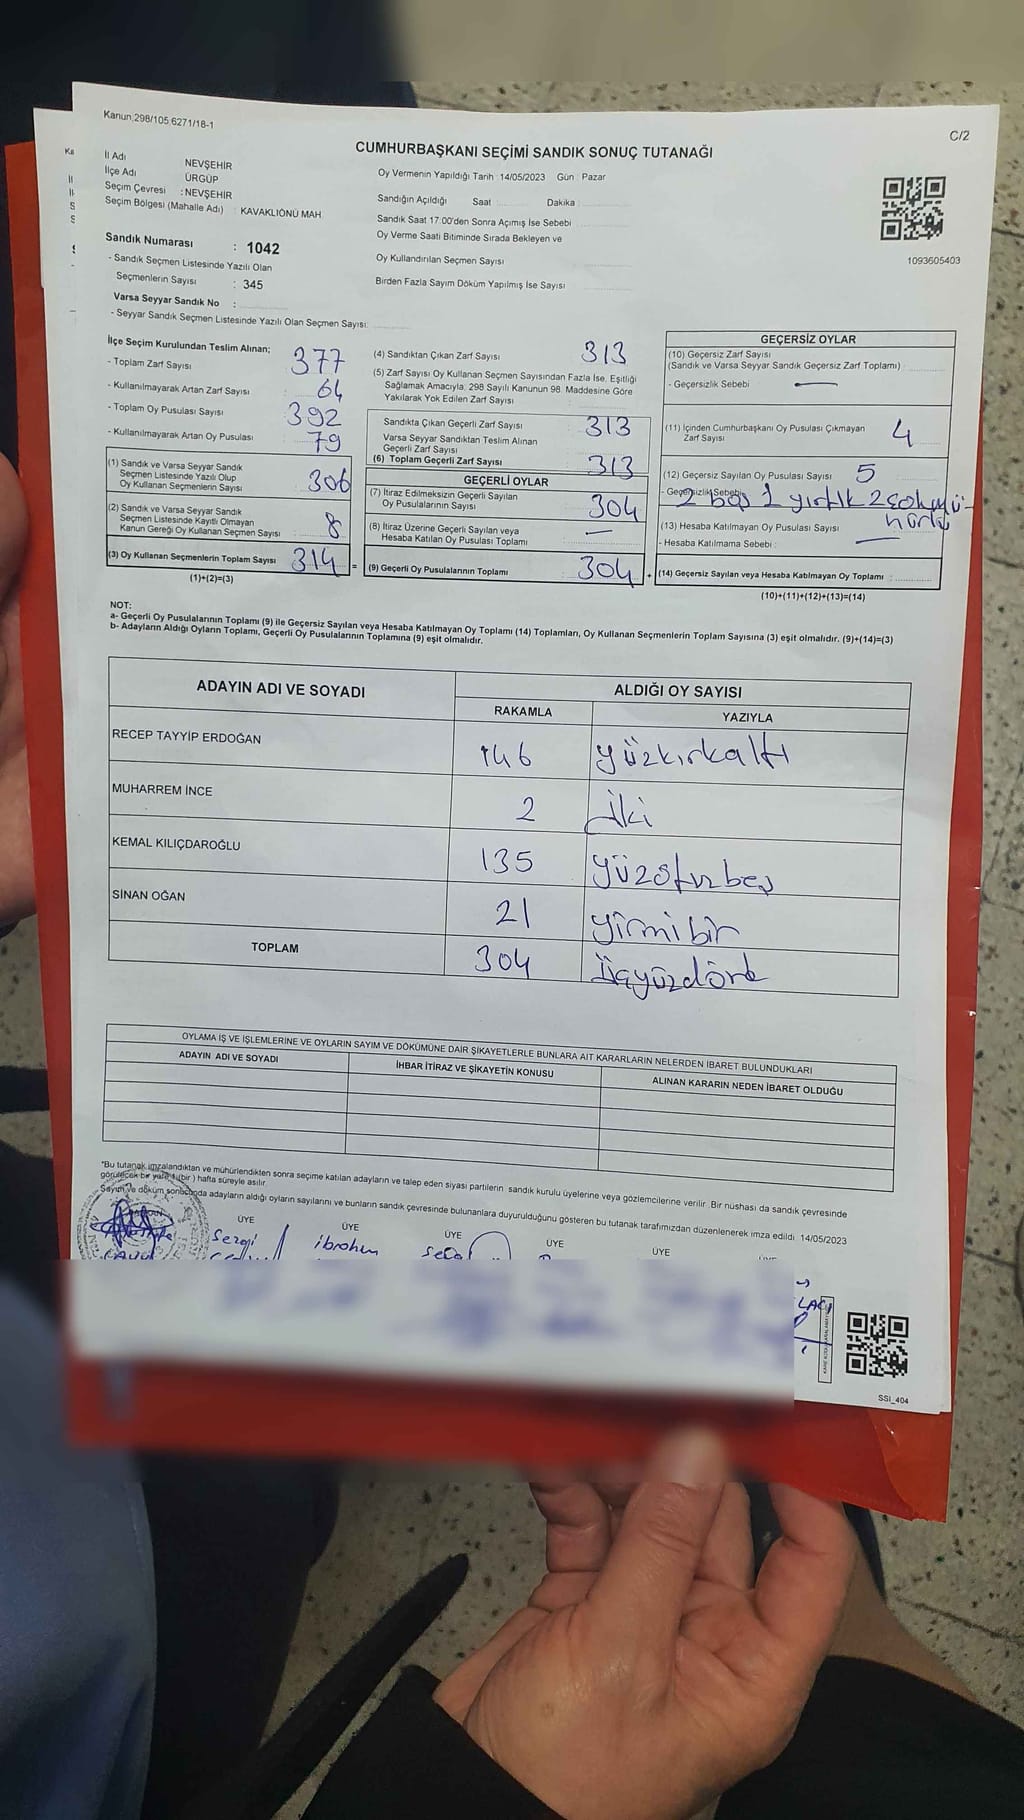 Kanun;298/105,6271/18-1
C/2
CUMHURBAŞKANI SEÇİMİ SANDIK SONUÇ TUTANAĞI
İl Adı NEVŞEHİR
İlçe Adı ÜRGÜP
Seçim Çevresi : NEVŞEHİR
Seçim Bölgesi (Mahalle Adı) : KAVAKLIÖNÜ MAH.
Sandık Numarası : 1042
- Sandık Seçmen Listesinde Yazılı Olan
Seçmenlerin Sayısı : 345
Varsa Seyyar Sandık No :
- Seyyar Sandık Seçmen Listesinde Yazılı Olan Seçmen Sayısı:
Oy Vermenin Yapıldığı Tarih : 14/05/2023 Gün : Pazar
Sandığın Açıldığı Saat Dakika
Sandık Saat 17:00'den Sonra Açımış İse Sebebi
Oy Verme Saati Bitiminde Sırada Bekleyen ve
Oy Kullandırılan Seçmen Sayısı
Birden Fazla Sayım Döküm Yapılmış İse Sayısı
1093605403
İlçe Seçim Kurulundan Teslim Alınan;
- Toplam Zarf Sayısı 377
- Kullanılmayarak Artan Zarf Sayısı 64
- Toplam Oy Pusulası Sayısı 392
- Kullanılmayarak Artan Oy Pusulası 79
(1) Sandık ve Varsa Seyyar Sandık
Seçmen Listesinde Yazılı Olup
Oy Kullanan Seçmenlerin Sayısı 306
(2) Sandık ve Varsa Seyyar Sandık
Seçmen Listesinde Kayıtlı Olmayan
Kanun Gereği Oy Kullanan Seçmen Sayısı 8
(3) Oy Kullanan Seçmenlerin Toplam Sayısı 314 =
(1)+(2)=(3)
(4) Sandıktan Çıkan Zarf Sayısı 313
(5) Zarf Sayısı Oy Kullanan Seçmen Sayısından Fazla İse, Eşitliği
Sağlamak Amacıyla, 298 Sayılı Kanunun 98. Maddesine Göre
Yakılarak Yok Edilen Zarf Sayısı
Sandıkta Çıkan Geçerli Zarf Sayısı 313
Varsa Seyyar Sandıktan Teslim Alınan
Geçerli Zarf Sayısı
(6) Toplam Geçerli Zarf Sayısı 313
GEÇERLİ OYLAR
(7) İtiraz Edilmeksizin Geçerli Sayılan
Oy Pusulalarının Sayısı 304
(8) İtiraz Üzerine Geçerli Sayılan veya
Hesaba Katılan Oy Pusulası Toplamı —
(9) Geçerli Oy Pusulalarının Toplamı 304 +
GEÇERSİZ OYLAR
(10) Geçersiz Zarf Sayısı
(Sandık ve Varsa Seyyar Sandık Geçersiz Zarf Toplamı)
- Geçersizlik Sebebi —
(11) İçinden Cumhurbaşkanı Oy Pusulası Çıkmayan
Zarf Sayısı 4
(12) Geçersiz Sayılan Oy Pusulası Sayısı 5
- Geçersizlik Sebebi 2 boş 1 yırtık 2 çok mü-
hürlü
(13) Hesaba Katılmayan Oy Pusulası Sayısı —
- Hesaba Katılmama Sebebi :
(14) Geçersiz Sayılan veya Hesaba Katılmayan Oy Toplamı :
(10)+(11)+(12)+(13)=(14)
NOT:
a- Geçerli Oy Pusulalarının Toplamı (9) ile Geçersiz Sayılan veya Hesaba Katılmayan Oy Toplamı (14) Toplamları, Oy Kullanan Seçmenlerin Toplam Sayısına (3) eşit olmalıdır. (9)+(14)=(3)
b- Adayların Aldığı Oyların Toplamı, Geçerli Oy Pusulalarının Toplamına (9) eşit olmalıdır.
ADAYIN ADI VE SOYADI ALDIĞI OY SAYISI
RAKAMLA YAZIYLA
RECEP TAYYİP ERDOĞAN 146 yüzkırkaltı
MUHARREM İNCE 2 iki
KEMAL KILIÇDAROĞLU 135 yüzotuzbeş
SİNAN OĞAN 21 yirmibir
TOPLAM 304 üçyüzdört
OYLAMA İŞ VE İŞLEMLERİNE VE OYLARIN SAYIM VE DÖKÜMÜNE DAİR ŞİKAYETLERLE BUNLARA AİT KARARLARIN NELERDEN İBARET BULUNDUKLARI
ADAYIN ADI VE SOYADI İHBAR İTİRAZ VE ŞİKAYETİN KONUSU ALINAN KARARIN NEDEN İBARET OLDUĞU
*Bu tutanak imzalandıktan ve mühürlendikten sonra seçime katılan adayların ve talep eden siyasi partilerin sandık kurulu üyelerine veya gözlemcilerine verilir. Bir nüshası da sandık çevresinde
görülecek bir yere 1(bir) hafta süreyle asılır.
Sayım ve döküm sonucunda adayların aldığı oyların sayılarını ve bunların sandık çevresinde bulunanlara duyurulduğunu gösteren bu tutanak tarafımızdan düzenlenerek imza edildi. 14/05/2023
ÜYE ÜYE ÜYE ÜYE ÜYE
Sezgi İbrahim
SSI_404